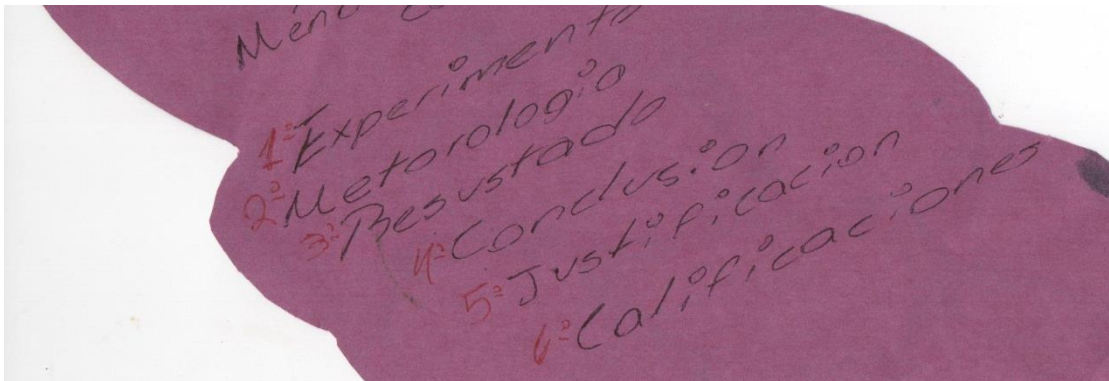 1º Experimento
2º Metorologia
3º Resustado
4º Conclusion
5º Justificacion
6º Calificaciones